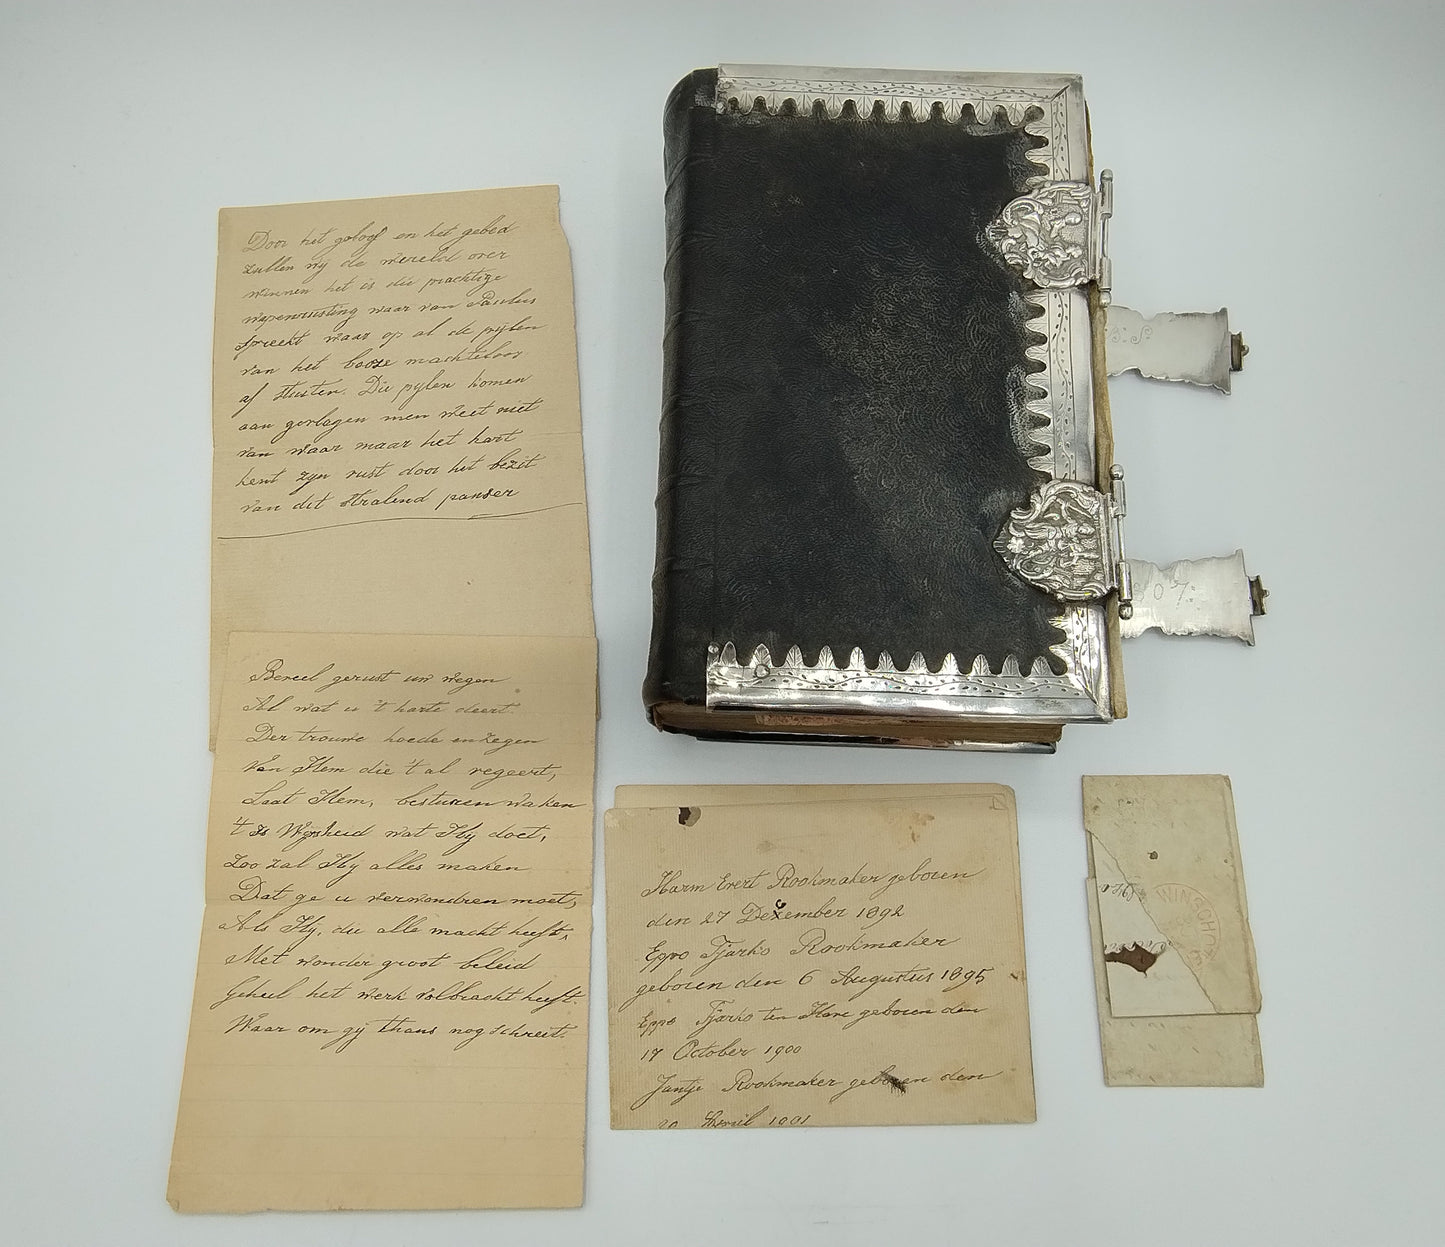 Door het geloof en het gebed
zullen wij de wereld over
winnen het is die prachtige
wapenrusting waar van Paulus
spreekt waar op al de pijlen
van het booze machteloos
af stuiten. Die pijlen komen
aan gevlogen men weet niet
van waar maar het hart
kent zijn rust door het bezit
van dit stralend panser
Beveel gerust uw wegen
Al wat u 't harte deert.
Der trouwe hoede en zegen
Van Hem die 't al regeert,
Laat Hem, besturen waken
't is Wijsheid wat Hij doet,
Zoo zal Hij alles maken
Dat ge u verwondren moet,
Als Hij, die alle macht heeft,
Met wonder groot beleid
Geheel het werk volbracht heeft.
Waar om gij thans nog schreit.
Harm Evert Rookmaker geboren
den 27 December 1892
Eppo Tjarko Rookmaker
geboren den 6 Augustus 1895
Eppo Tjarko ten Have geboren den
17 October 1900
Jantje Rookmaker geboren den
20 April 1901
B: S:
807:
WINSCHOTEN